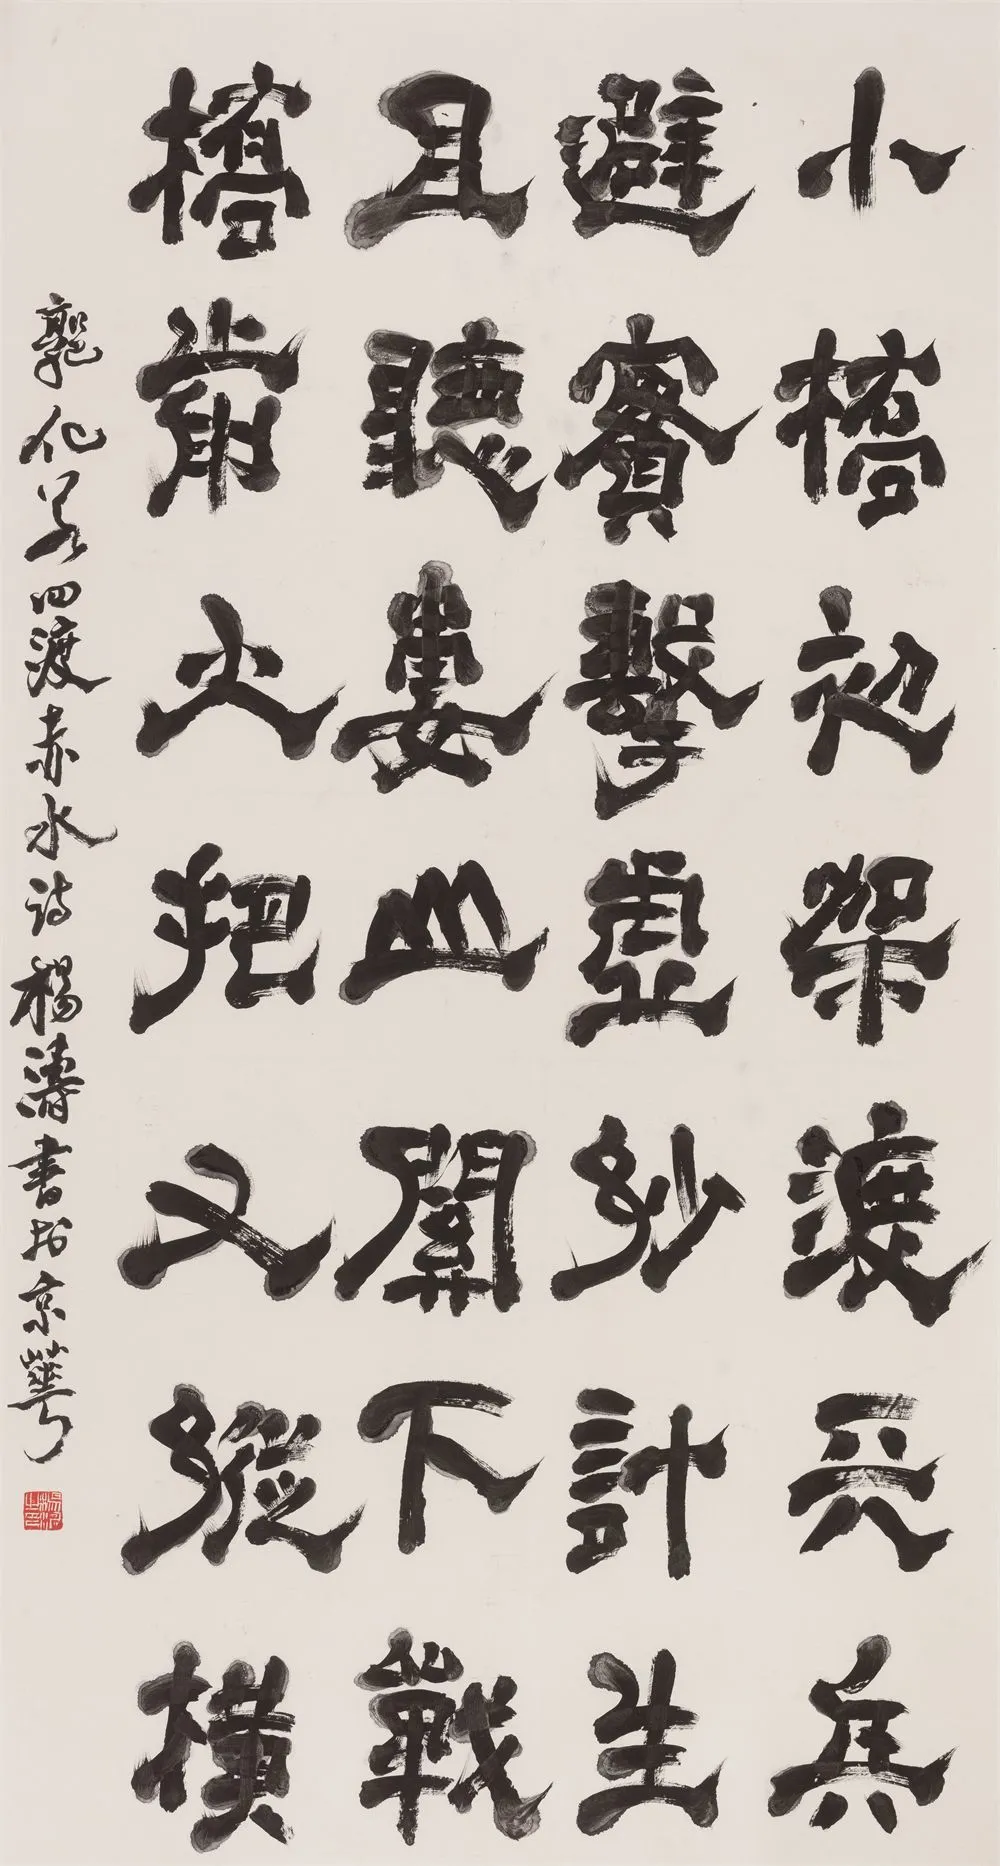 小橋初架渡天兵
避實擊虛妙計生
且聽婁山關下戰
橋前火把又縱橫
郭化若四渡赤水詩楊濤書於京華
楊濤之印